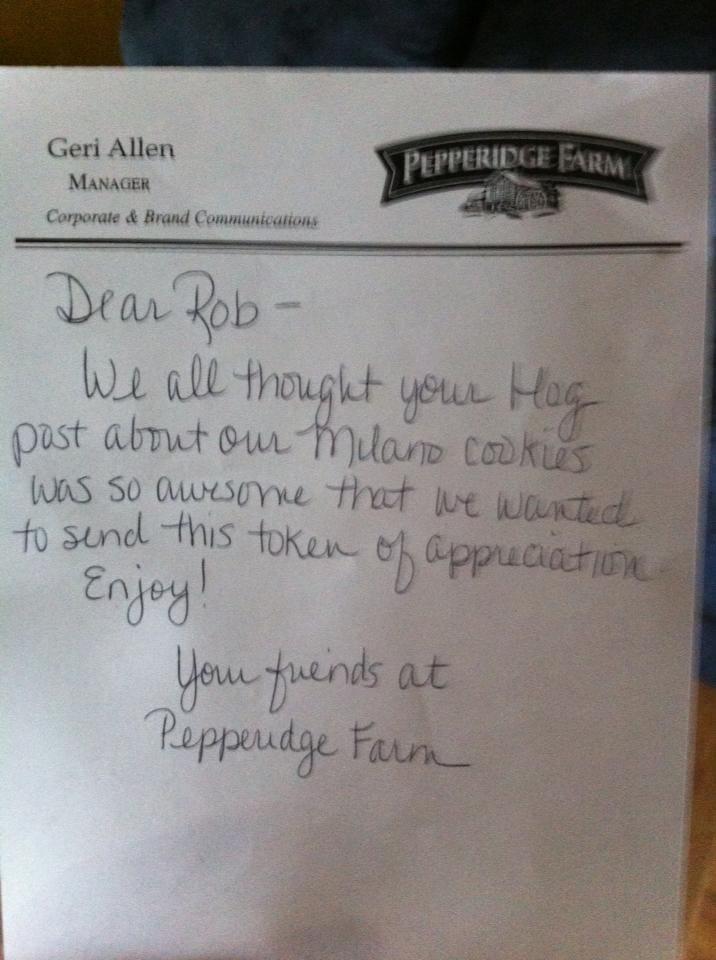 Geri Allen
MANAGER
Corporate & Brand Communications
PEPPERIDGE FARM
Dear Rob -
We all thought your blog
post about our Milano cookies
was so awesome that we wanted
to send this token of appreciation
Enjoy!
Your friends at
Pepperidge Farm